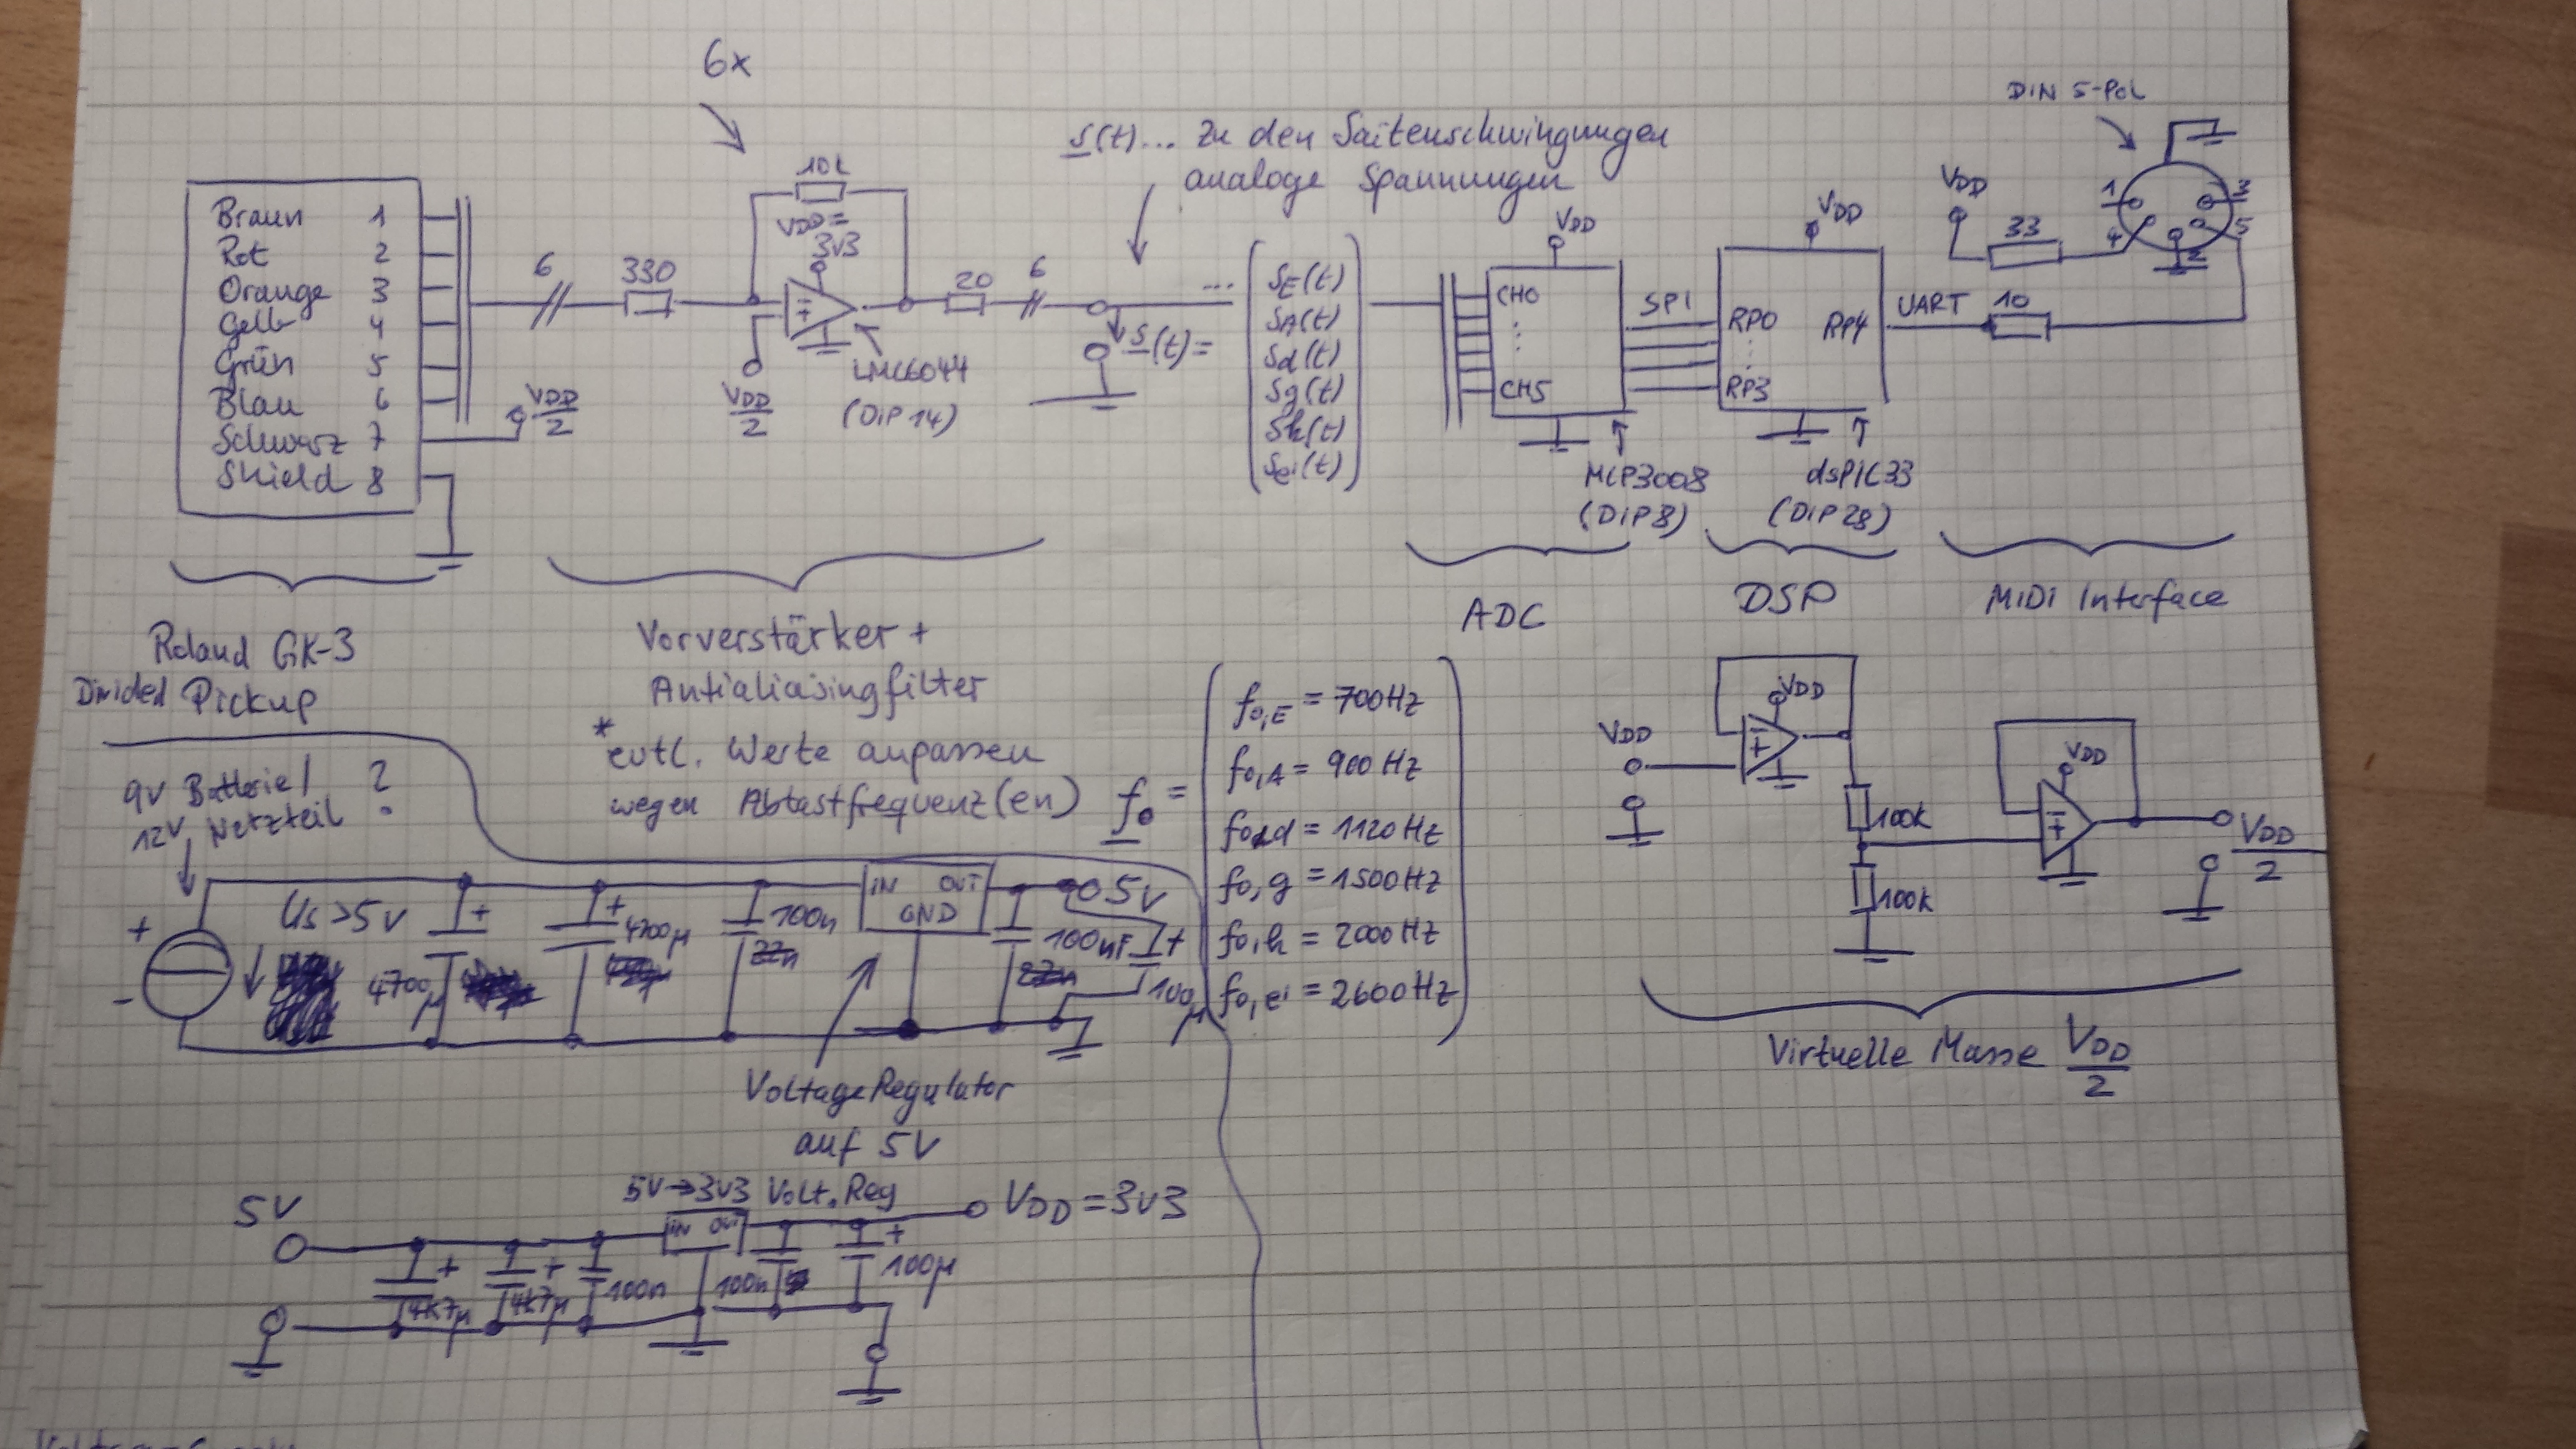 6x
DIN 5-Pol
s(t)... zu den Saitenschwingungen
analoge Spannungen
Braun 1
Rot 2
Orange 3
Gelb 4
Grün 5
Blau 6
Schwarz 7
Shield 8
VDD
2
6
330
10k
VDD =
3V3
VDD
2
LMC6044
(DIP 14)
20
6
s(t) =
...
SE(t)
SA(t)
Sd(t)
Sg(t)
Sh(t)
Se'(t)
VDD
CH0
⋮
CH5
MCP3008
(DIP 8)
SPI
VDD
RP0
⋮
RP3
RP4
dsPIC33
(DIP 28)
UART
VDD
33
10
1
2
3
4
5
Roland GK-3
Divided Pickup
Vorverstärker +
Antialiasingfilter
* evtl. Werte anpassen
wegen Abtastfrequenz(en)
ADC
DSP
MIDI Interface
f0 =
f0,E = 700Hz
f0,A = 900 Hz
f0,d = 1120 Hz
f0,g = 1500Hz
f0,h = 2000 Hz
f0,e' = 2600 Hz
VDD
VDD
100k
100k
VDD
VDD
2
Virtuelle Masse VDD
2
9V Batterie/ ?
12V Netzteil
+
-
Us > 5V
+
4700µ
+
4700µ
100n
22n
IN OUT
GND
5V
100nF
22n
+
100µ
Voltage Regulator
auf 5V
5V→3V3 Volt.Reg
5V
+
4k7µ
+
4k7µ
100n
IN OUT
100n
+
100µ
VDD = 3V3